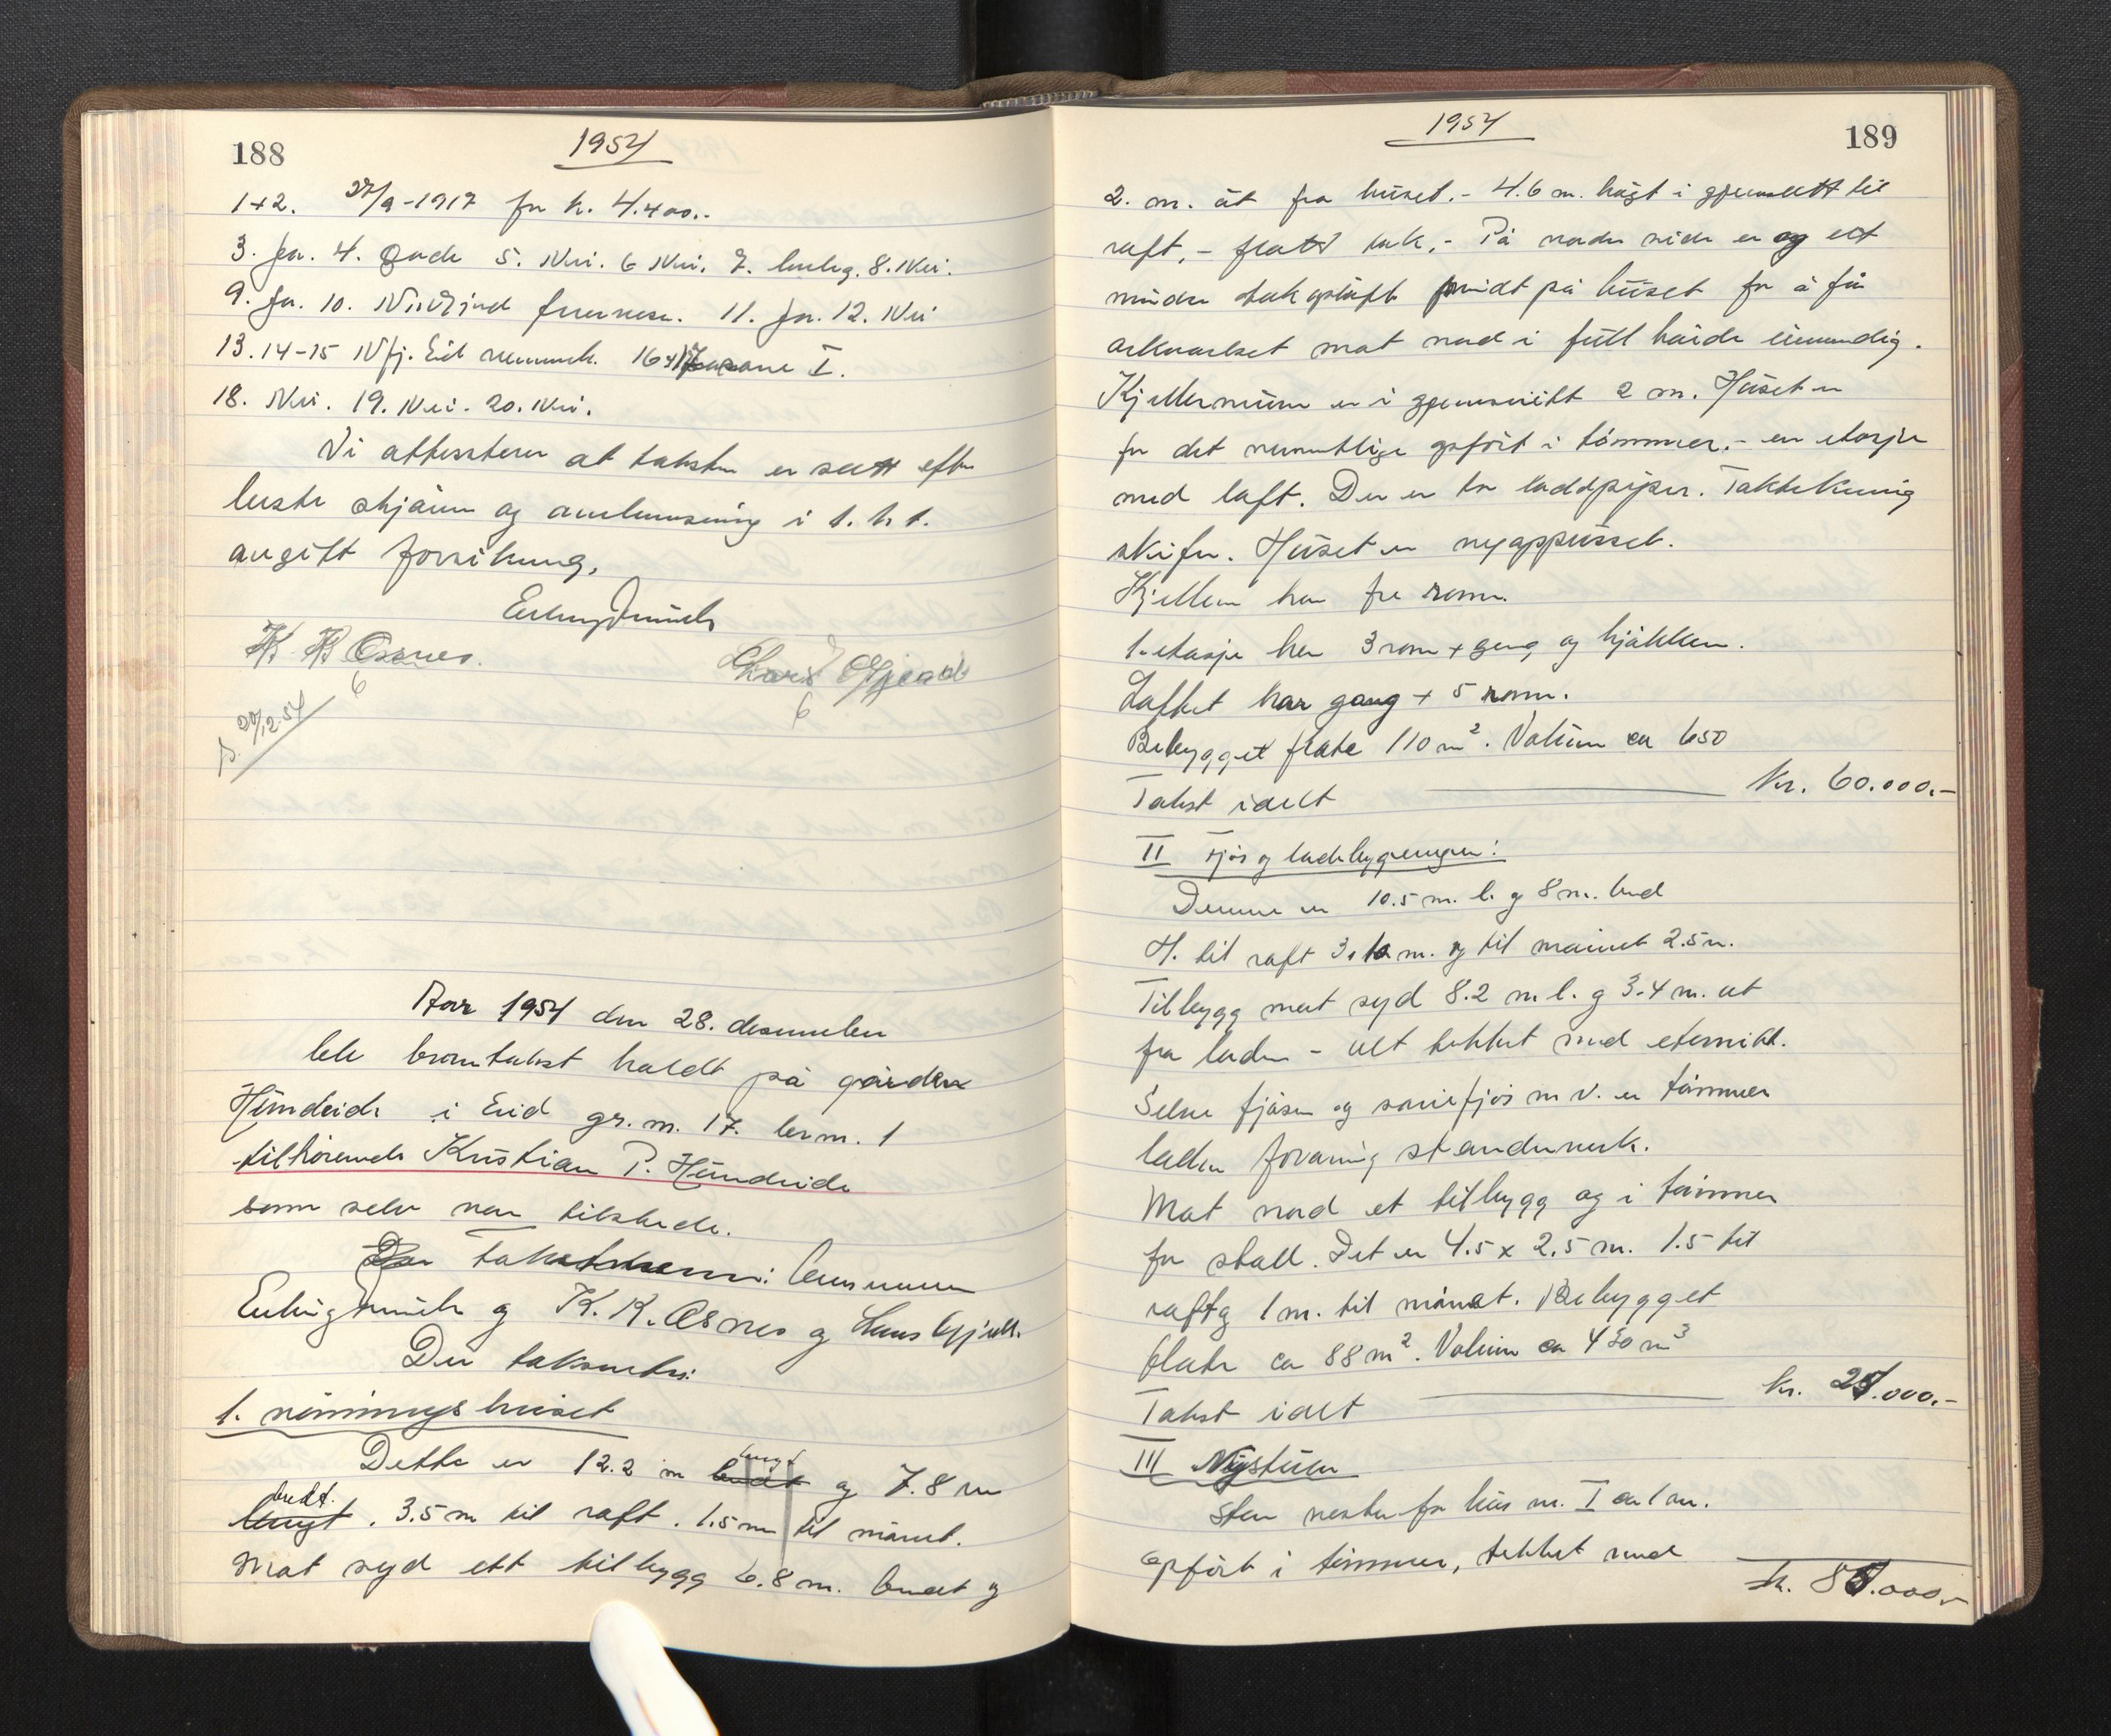 188
1954
1+2. 27/9-1917 for kr. 4.400.-
3. Ja. 4. Gode 5. Nei. 6 Nei. 7. 8. Nei.
9. Ja. 10. 11. Ja. 12. Nei
13. 14-15 Nfj. Eid 16+17 I.
18. Nei. 19. Nei. 20. Nei.
Vi attesterer at taksten er satt efter
beste skjønn og i t. h. t.
avgitt forsikring.
Erling
K K Osnes. Lars Gjead
6 6
29/12.54
Aar 1954 den 28. desember
ble branntakst holdt på gården
Hundeide i Eid gr. nr. 17. br nr. 1
tilhørende Kristian P. Hundeide
som selv var tilstede.
Der takstmenn: lensmann
Erling og K. K. Osnes og Lars
Der takseres:
1. våningshuset
lengt
Dette er 12.2 m bredt og 7.8 m
bredt.
lengt. 3.5 m til raft. 1.5 m til mønet.
Mot syd ett tilbygg 6.8 m. bredt og
1954
189
2. m. ut fra huset. - 4.6 m. høgt i gjennsnitt til
raft, - flatt tak. - På nordre side er og ett
mindre takopløft midt på huset for å få
mot nord i full høide innvendig.
Kjellermuren er i gjennsnitt 2 m. Huset er
for det vesentlige opført i tømmer. - en etasje
med loft. Der er to loddpiper. Taktekning
skifer. Huset er nyoppusset.
Kjelleren har fire rom.
1. etasje har 3 rom + gang og kjøkken.
Loftet har gang + 5 rom.
Bebygget flate 110 m². Volum ca 650
Takst ialt kr. 60.000.-
II Fjøs og ladebygningen:
Denne er 10.5 m. l. og 8 m. bred
H. til raft m. og til mønet 2.5 m.
Tilbygg mot syd 8.2 m l. og 3.4 m. ut
fra laden - alt tekket med eternitt.
Selve fjøsen og sauefjøs m v. er tømmer
laden forøvrig standverk.
Mot nord et tilbygg og i tømmer
for stall. Det er 4.5 x 2.5 m. 1.5 til
raft og 1 m. til mønet. Bebygget
flate ca 88 m². Volum ca 430 m³
Takst ialt kr. 25.000.-
III Nystuen
Sten vestenfor hus nr. I ca 1 m.
opført i tømmer, tekket med
kr. 85.000.-